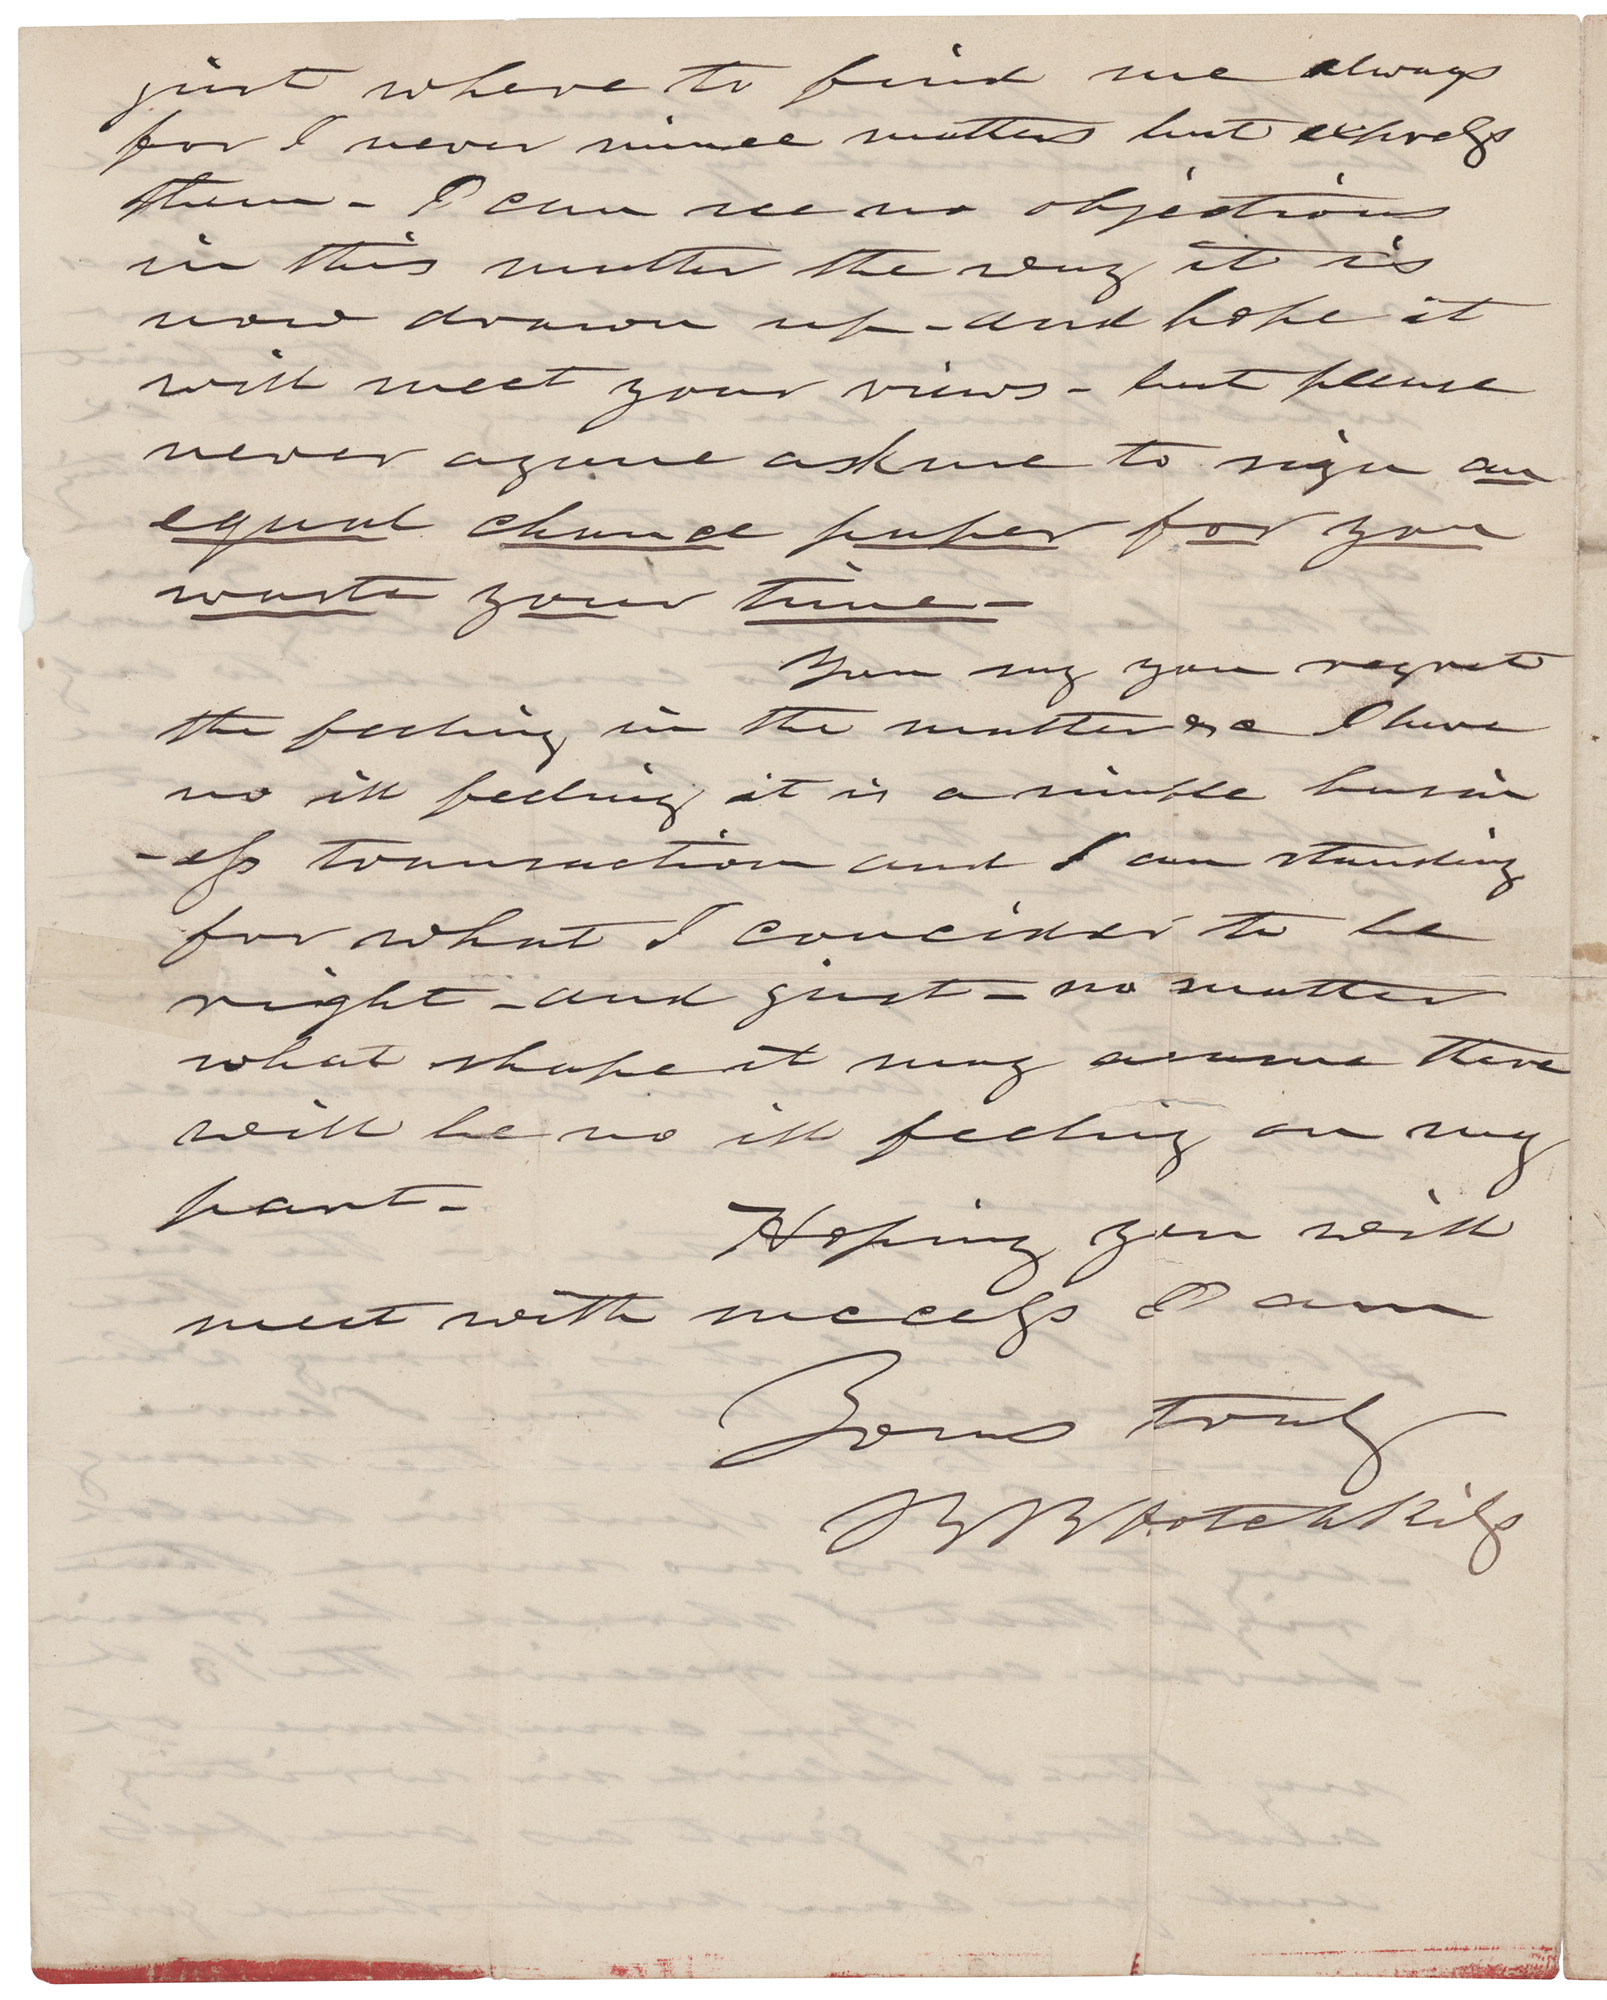 just where to find me always
for I never mince matters but express
them - I can see no objections
in this matter the way it is
now drawn up - and hope it
will meet your views - but please
never agane ask me to sign an
equal chance paper for you
waste your time -
You say you regret
the feeling in the matter &c I have
no ill feeling it is a simple busin
-ess transaction and I am standing
for what I concider to be
right - and just - no matter
what shape it may assume there
will be no ill feeling on my
part -
Hoping you will
meet with success I am
Yours truly
B B Hotchkiss